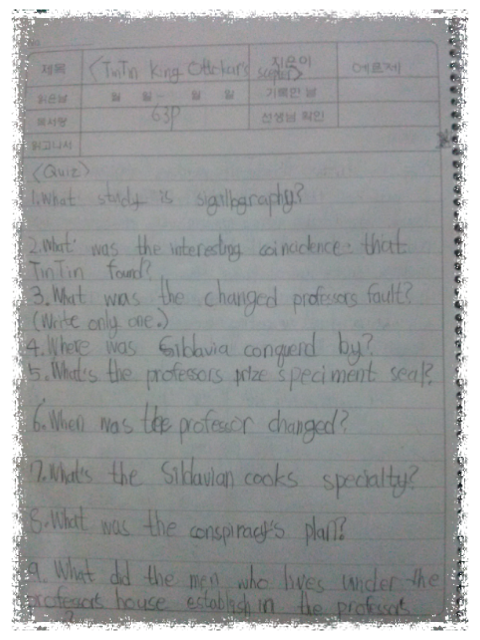 제목 <TinTin King Ottokar's scepter> 지은이 에르제
읽은날 월 일~ 월 일 기록한 날
독서량 63p 선생님 확인
읽고나서
<Quiz>
1.What study is sigillography?
2.What was the interesting coincidence that
TinTin found?
3.What was the changed professors fault?
(Write only one.)
4.Where was Sildavia conquerd by?
5.What's the professors prize speciment seal?
6.When was the professor changed?
7.What's the Sildavian cooks specialty?
8.What was the conspiracy's plan?
9. What did the men who lives under the
professors house establish in the professors
?